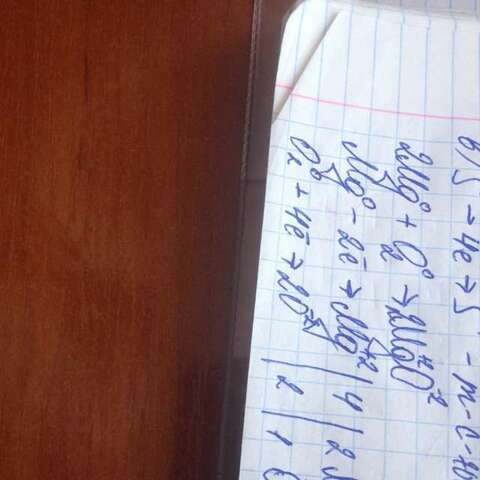 в) S - 4e → S - п-с-ль
2Mg⁰ + O₂⁰ → 2Mg⁺²O⁻²
Mg⁰ - 2e → Mg⁺² | 4 | 2
O₂⁰ + 4e → 2O⁻² | 2 | 1